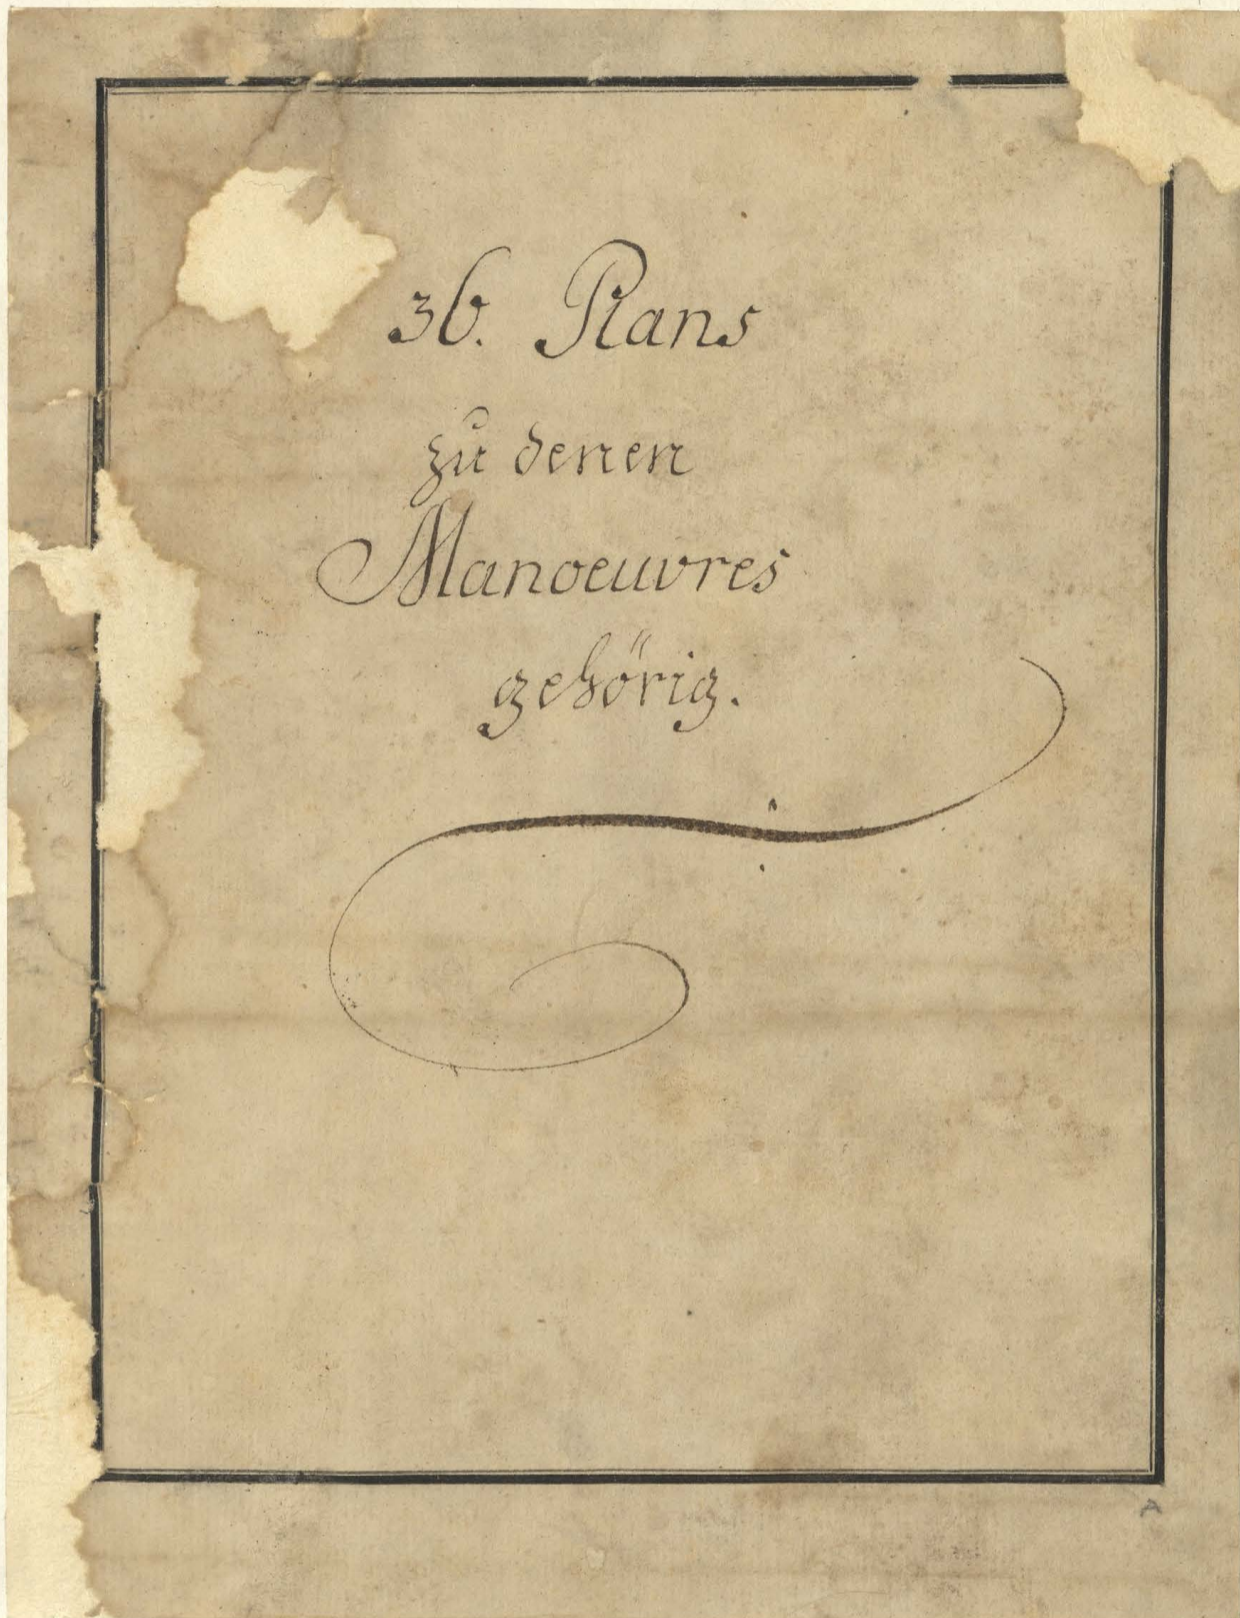 36. Plans
zu denen
Manoeuvres
gehörig.
A